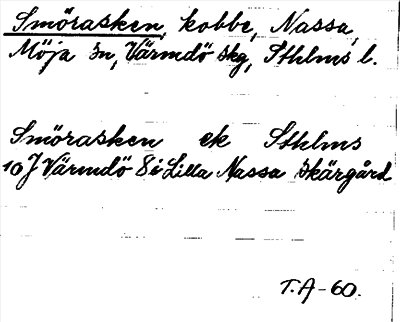 Smörasken, kobbe, Nassa,
Möja sn, Värmdö skg, Sthlms l.
Smörasken ek Sthlms
10J Värmdö 8i Lilla Nassa Skärgård
T.A-60.